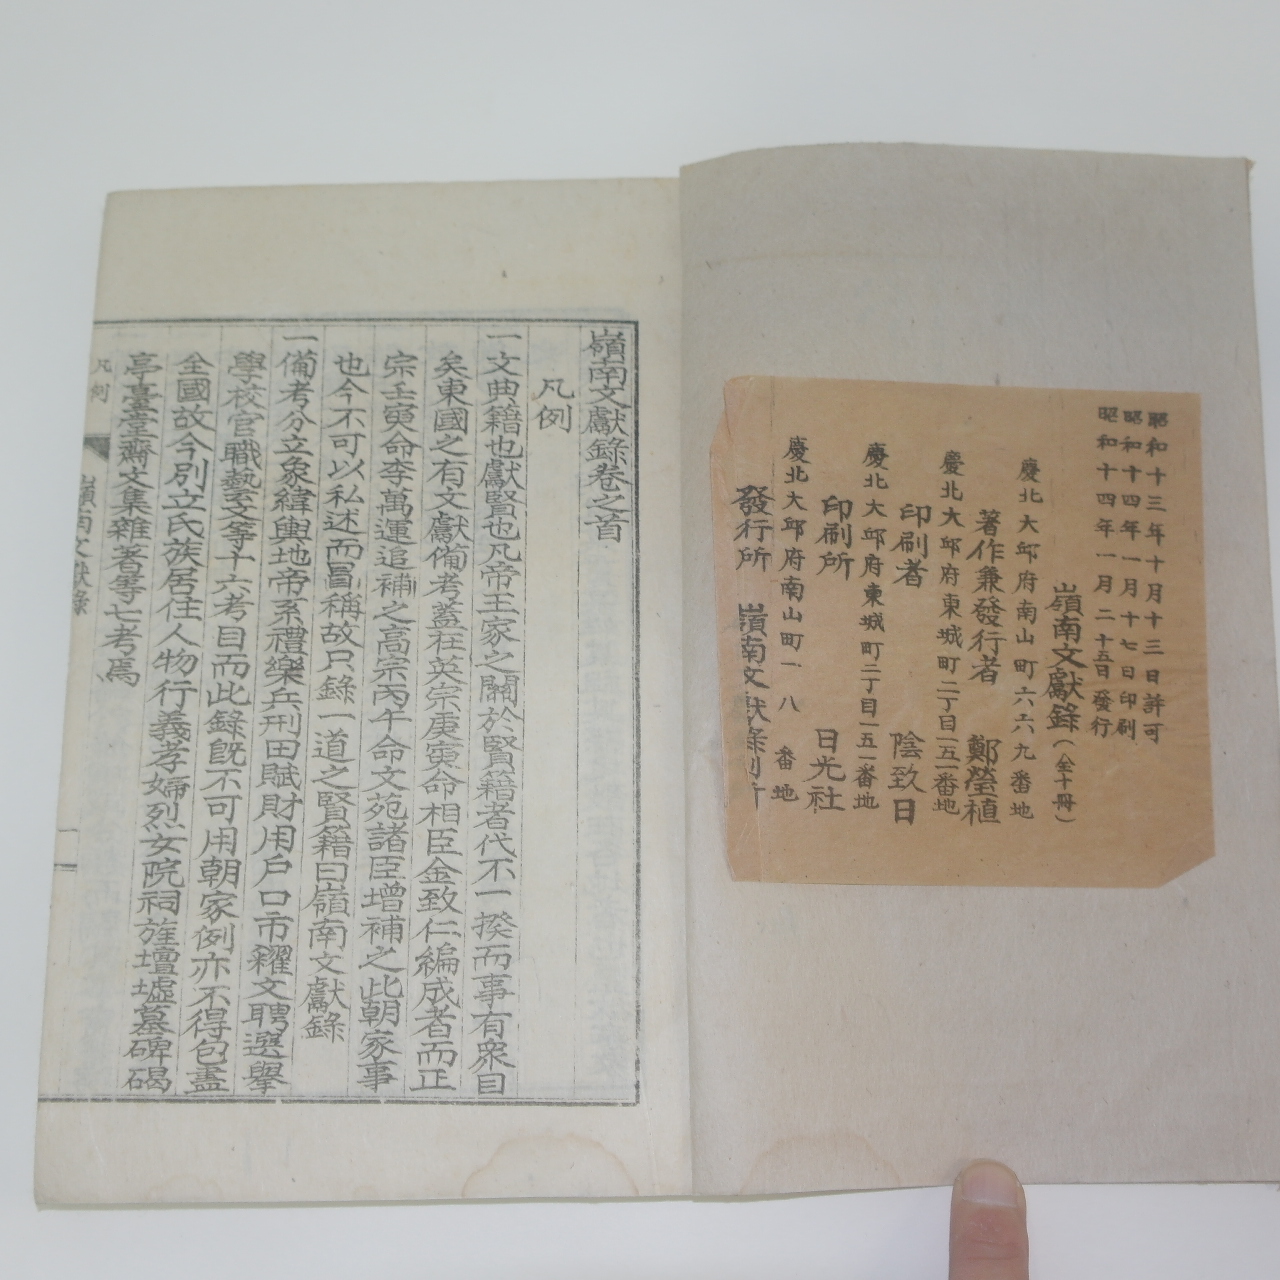 昭和十三年十月十三日許可
昭和十四年一月十七日印刷
昭和十四年一月二十五日發行
嶺南文獻錄(全十冊)
慶北大邱府南山町六六九番地
著作兼發行者 鄭瑩植
慶北大邱府東城町二丁目一五一番地
印刷者 陰致日
慶北大邱府東城町二丁目一五一番地
印刷所 日光社
慶北大邱府南山町一八番地
發行所 嶺南文獻錄刊所
嶺南文獻錄卷之首
凡例
一文典籍也獻賢也凡帝王家之關於賢籍者代不一揆而事有衆目
矣東國之有文獻備考蓋在英宗庚寅命相臣金致仁編成者而正
宗壬寅命李萬運追補之高宗丙午命文苑諸臣增補之此朝家事
也今不可以私述而冒稱故只錄一道之賢籍曰嶺南文獻錄
一備考分立象緯輿地帝系禮樂兵刑田賦財用戶口市糴文聘選擧
學校官職藝文等十六考目而此錄旣不可用朝家例亦不得包盡
全國故今別立氏族居住人物行義孝婦烈女院祠旌壇墟墓碑碣
亭臺堂齋文集雜著等七考焉
凡例
嶺南文獻錄